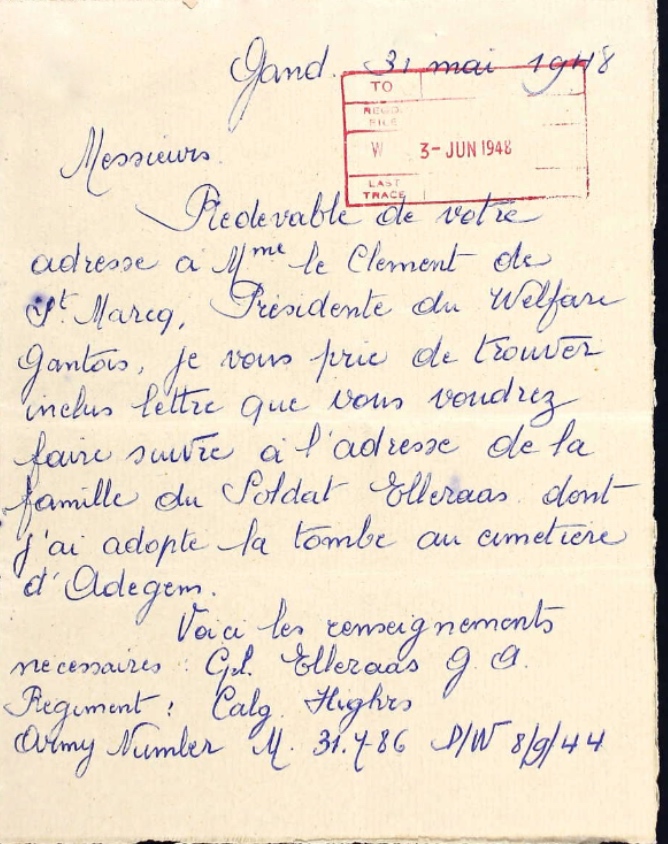 Gand. 31 mai 1948
TO
REGD.
FILE
W 3-JUN 1948
LAST
TRACE
Messieurs.
Redevable de votre
adresse a Mme le Clement de
St. Marcq, Présidente du Welfare
Gantois, je vous prie de trouver
inclus lettre que vous voudrez
faire suivre à l'adresse de la
famille du Soldat Elleraas dont
j'ai adopte la tombe au cimetière
d'Adegem.
Voici les renseignements
necessaires : Elleraas G. A.
Regiment : Calg. Highrs
Army Number M. D/W 8/9/44